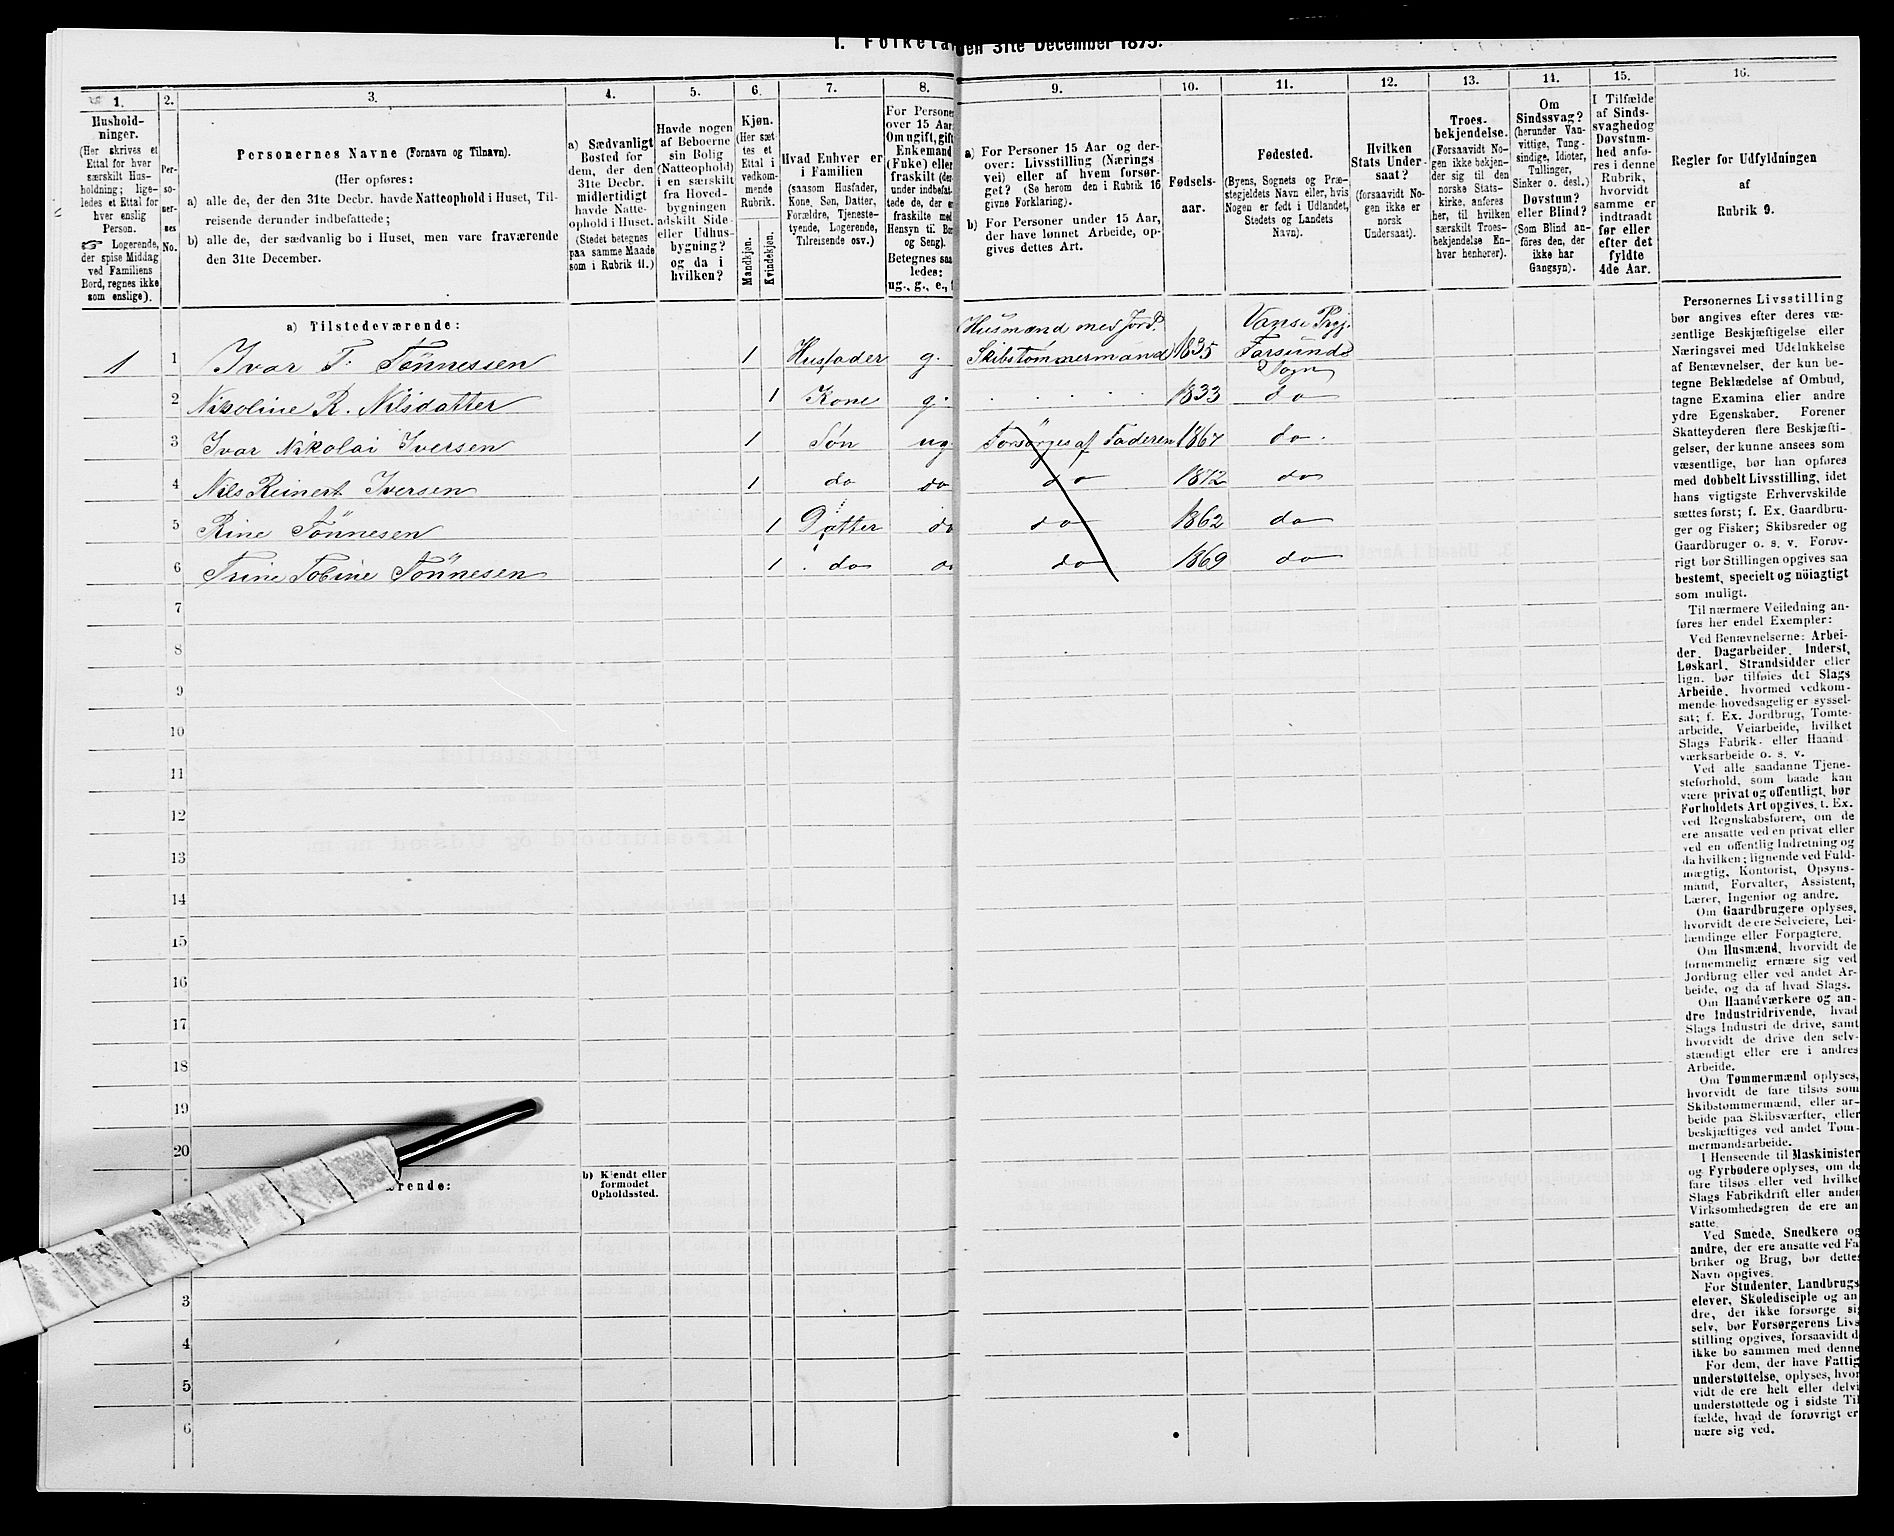 1. Folketal den 31te December 1875.
1.
2.
3.
4.
5.
6.
7.
8.
9.
10.
11.
12.
13.
14.
15.
16.
Hushold-
ninger.
(Her skrives et
Ettal for hver
særskilt Hus-
holdning; lige-
ledes et Ettal for
hver enslig
Person.
☞ Logerende,
der spise Middag
ved Familiens
Bord, regnes ikke
som enslige).
Per-
so-
ner-
nes
No.
Personernes Navne (Fornavn og Tilnavn).
(Her opføres:
a) alle de, der den 31te Decbr. havde Natteophold i Huset, Til-
reisende derunder indbefattede;
b) alle de, der sædvanlig bo i Huset, men vare fraværende
den 31te December.
a) Sædvanligt
Bosted for
dem, der den
31te Decbr.
midlertidigt
havde Natte-
ophold i Huset.
(Stedet betegnes
paa samme Maade
som i Rubrik 11.)
Havde nogen
af Beboerne
sin Bolig
(Natteophold)
i en særskilt
fra Hoved-
bygningen
adskilt Side-
eller Udhus-
bygning?
og da i
hvilken?
Kjøn.
(Her sæt
tes et
Ettal i
vedkom-
mende
Rubrik.
Mandkjøn.
Kvindekjøn.
Hvad Enhver er
i Familien
(saasom Husfader,
Kone, Søn, Datter,
Forældre, Tjeneste-
tyende, Logerende,
Tilreisende osv.)
For Persone
over 15 Aar
Om ugift, gift
Enkemand
(Fuke) eller
fraskilt (der-
under indbefat-
tede de, der e
fraskilte med
Hensyn til Bo
og Seng).
Betegnes saa
ledes:
ug., g., e.,
a) For Personer 15 Aar og der-
over: Livsstilling (Nærings
vei) eller af hvem forsør-
get? (Se herom den i Rubrik 16
givne Forklaring).
b) For Personer under 15 Aar,
der have lønnet Arbeide, op-
gives dettes Art.
Fødsels-
aar.
Fødested.
(Byens, Sognets og Præ-
stegjeldets Navn eller, hvis
Nogen er født i Udlandet,
Stedets og Landets
Navn).
Hvilken
Stats Under-
saat?
(forsaavidt No-
gen ikke er
norsk
Undersaat).
Troes-
bekjendelse.
(Forsaavidt No-
gen ikke bekjen-
der sig til den
norske Stats-
kirke, anføres
her, til hvilken
særskilt Troes-
bekjendelse En-
hver henhører).
Om
Sindssvag?
(herunder Van-
vittige, Tung-
sindige, Idioter,
Tullinger,
Sinker o. desl.)
Døvstum?
eller Blind?
(Som Blind an-
føres den, der
ikke har
Gangsyn).
I Tilfælde
af Sinds-
svaghed og
Døvstum-
hed anfø-
res i denne
Rubrik,
hvorvidt
samme er
indtraadt
før eller
efter det
fyldte
4de Aar.
Regler for Udfyldningen
af
Rubrik 9.
a) Tilstedeværende:
Husmand med Jord.
Vanse Prgj.
1 1 Ivar T. Tönnessen 1 Husfader g. Skibstømmermand 1835 Farsunds
Sogn
2 Nikoline R. Nilsdatter 1 Kone g. 1833 do
3 Ivar Nikolai Iversen 1 Søn ug. Forsørges af Faderen 1867 do.
4 Nils Reinert Iversen 1 do do do 1872 do
5 Rine Tönnesen 1 Datter do do 1862 do
6 Trine Tobine Tönnesen 1 do do 1869 do
7
8
9
10
11
12
13
14
15
16
17
18
19
20
rende:
b) Kjendt eller
formodet
Opholdssted.
3
4
5
6
Personernes Livsstilling
bør angives efter deres væ-
sentlige Beskjæftigelse eller
Næringsvei med Udelukkelse
af Benævnelser, der kun be-
tegne Beklædelse af Ombud,
tagne Examina eller andre
ydre Egenskaber. Forener
Skatteyderen flere Beskjæfti-
gelser, der kunne ansees som
væsentlige, bør han opføres
med dobbelt Livsstilling, idet
hans vigtigste Erhvervskilde
sættes først; f. Ex. Gaardbru-
ger og Fisker; Skibsreder og
Gaardbruger o. s. v. Forøv-
rigt bør Stillingen opgives saa
bestemt, specielt og nöiagtigt
som muligt.
Til nærmere Veiledning an-
føres her endel Exempler:
Ved Benævnelserne: Arbei-
der, Dagarbeider, Inderst,
Løskarl, Strandsidder eller
lign. bør tilføies det Slags
Arbeide, hvormed vedkom-
mende hovedsagelig er syssel-
sat; f. Ex. Jordbrug, Tomte-
arbeide, Veiarbeide, hvilket
Slags Fabrik- eller Haand
værksarbeide o. s. v.
Ved alle saadanne Tjene-
steforhold, som baade kan
være privat og offentligt, bør
Forholdets Art opgives, t. Ex.
ved Regnskabsførere, om de
ere ansatte ved en privat eller
ved en offentlig Indretning og
da hvilken; lignende ved Fuld-
mægtig, Kontorist, Opsyns-
mand, Forvalter, Assistent,
Lærer, Ingeniør og andre.
Om Gaardbrugere oplyses,
hvorvidt de ere Selveiere, Lei-
lændinge eller Forpagtere.
Om Husmænd, hvorvidt de
fornemmelig ernære sig ved
Jordbrug eller ved andet Ar-
beide, og da af hvad Slags.
Om Haandværkere og an-
dre Industridrivende, hvad
Slags Industri de drive, samt
hvorvidt de drive den selv-
stændigt eller ere i andres
Arbeide.
Om Tømmermænd oplyses,
hvorvidt de fare tilsøs som
Skibstømmermænd, eller ar-
beide paa Skibsværfter, eller
beskjæftiges ved andet Tøm-
mermandsarbeide.
I Henseende til Maskinister
og Fyrbødere oplyses, om de
fare tilsøs eller ved hvilket
Slags Fabrikdrift eller anden
Virksomhedsgren de ere an
satte.
Ved Smede, Snedkere og
andre, der ere ansatte ved Fa
briker og Brug, bør dettes
Navn opgives.
For Studenter, Landbrugs
elever, Skoledisciple og an
dre, der ikke forsørge sig
selv, bør Forsørgerens Livs
stilling opgives, forsaavidt d
ikke bo sammen med denne
For dem, der have Fattig
understøttelse, oplyses, hvor
vidt de ere helt eller delvi
understøttede og i sidste Til
fælde, hvad de forøvrigt er
nære sig ved.